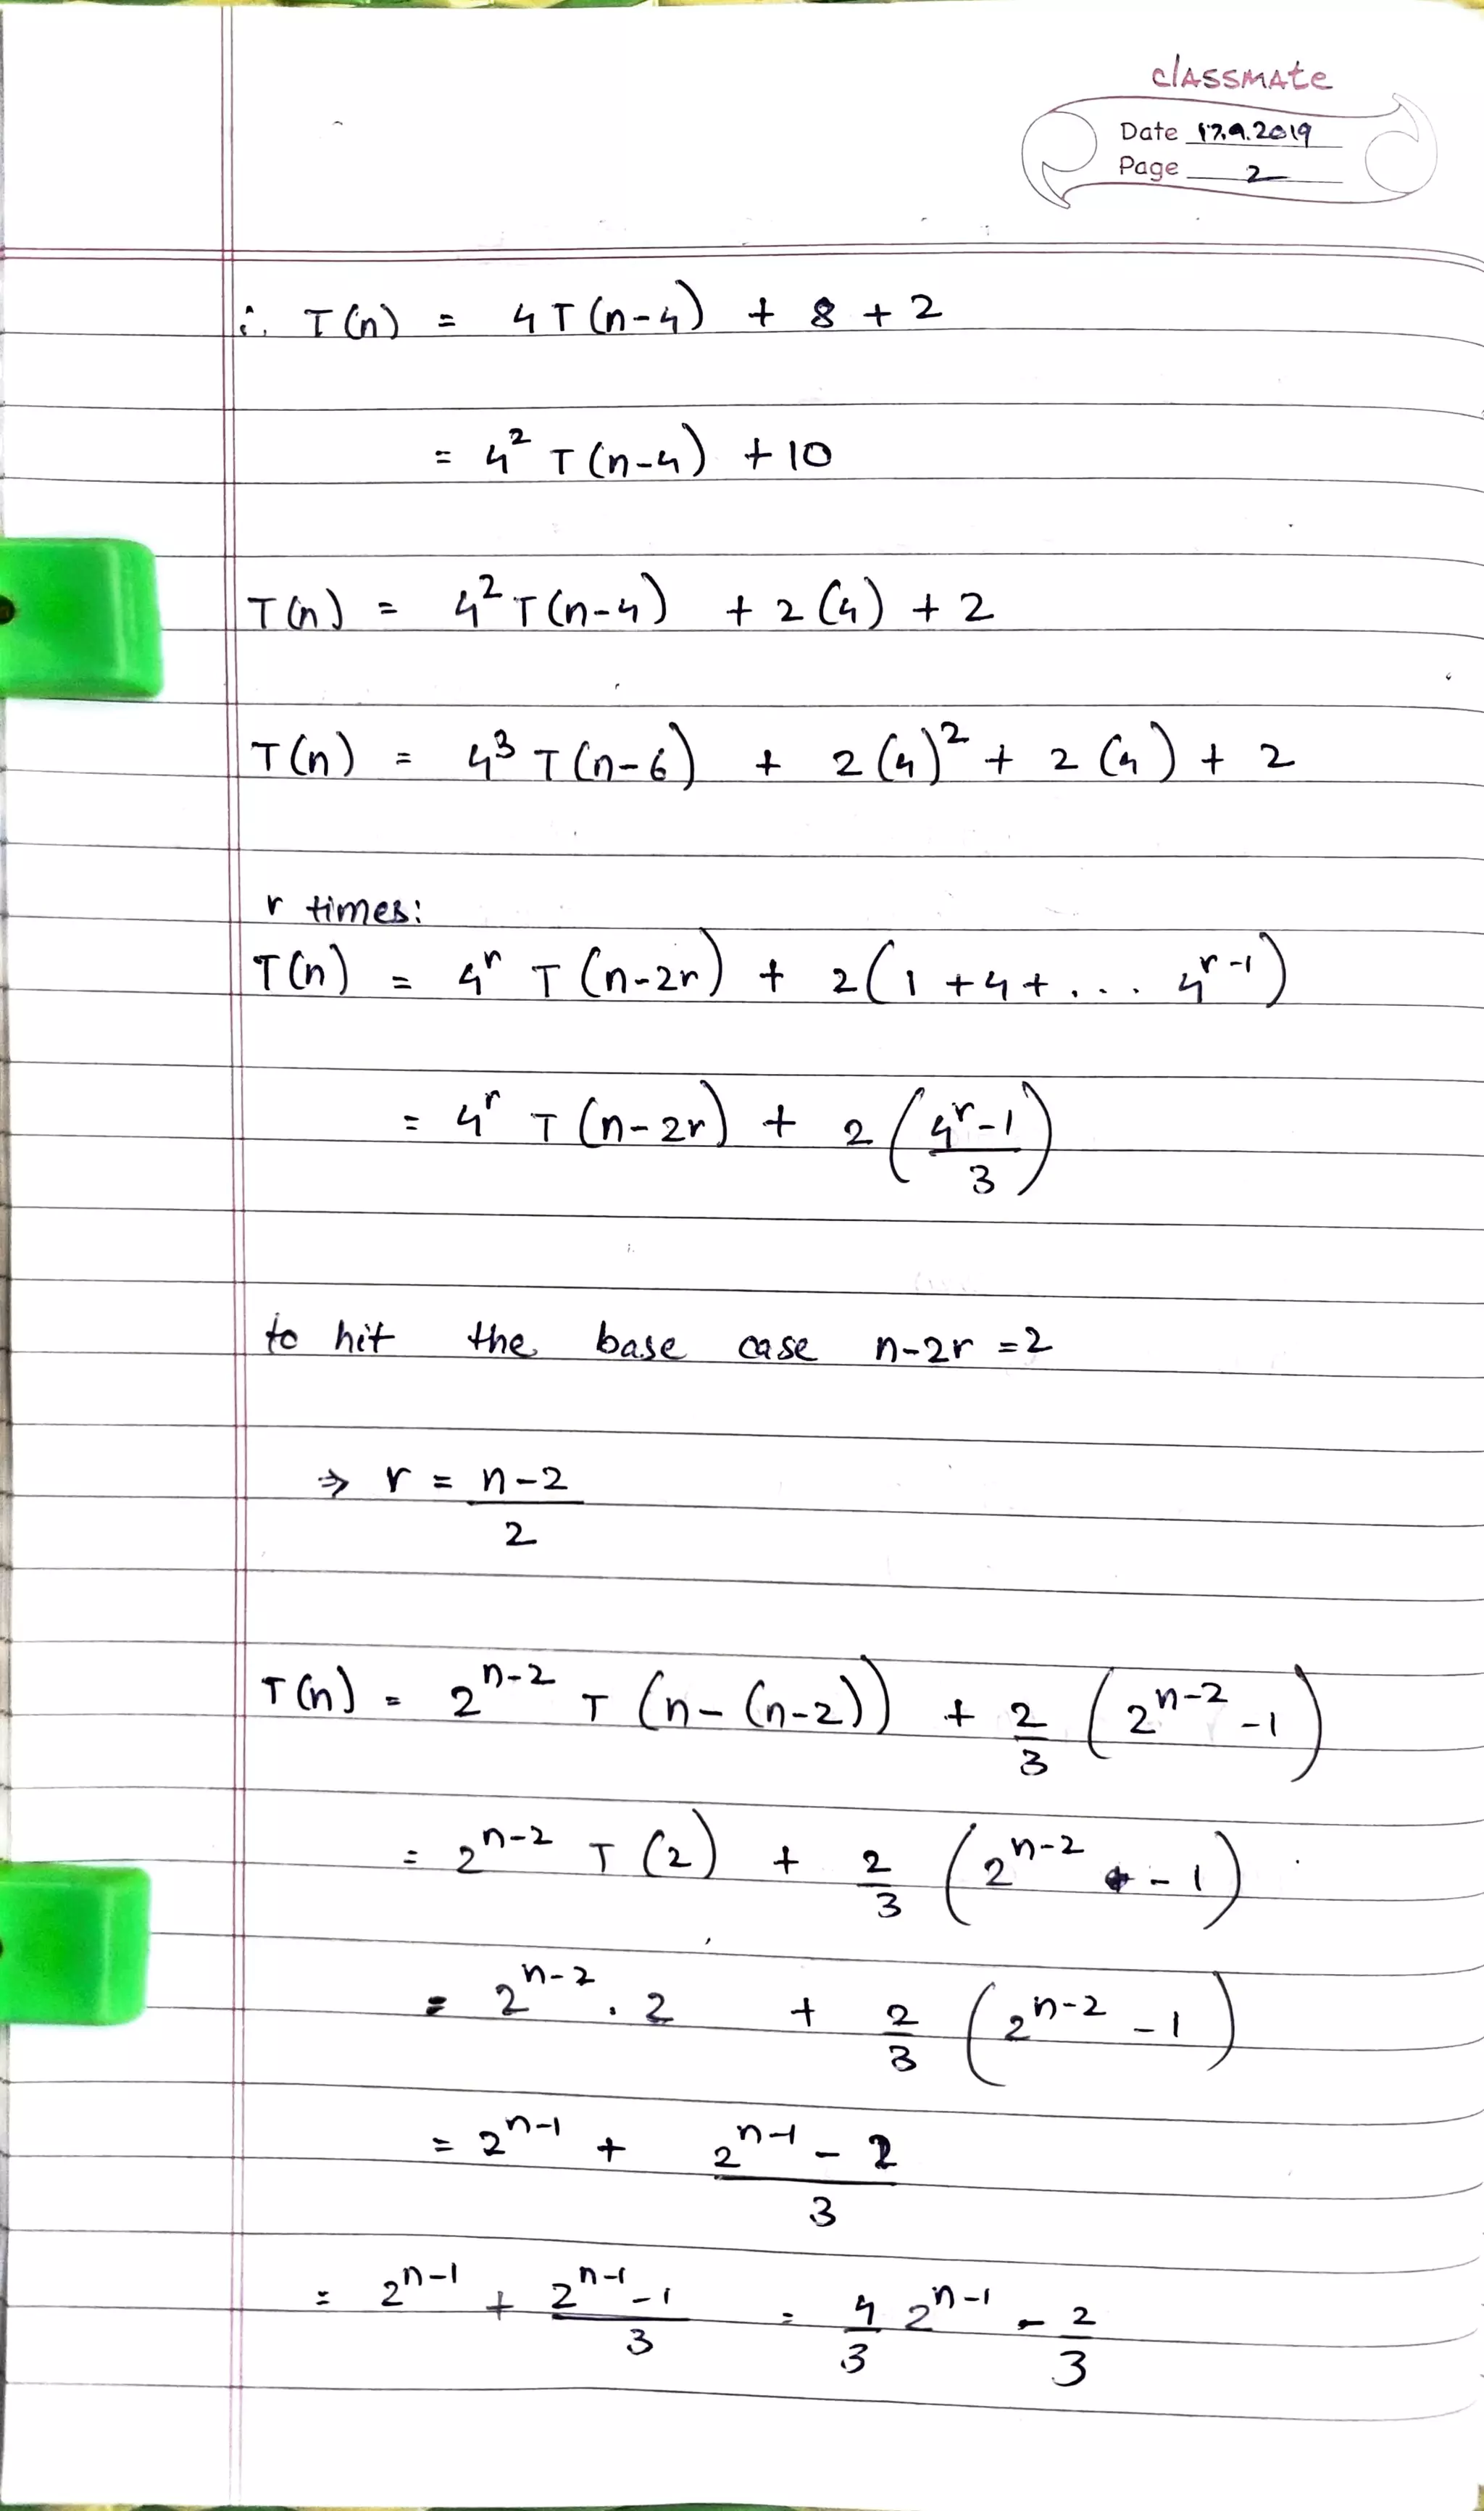 classmate
Date 17.9.2019
Page 2
∴ T(n) = 4T(n-4) + 8 + 2
= 4² T(n-4) + 10
T(n) = 4² T(n-4) + 2(4) + 2
T(n) = 4³ T(n-6) + 2(4)² + 2(4) + 2
r times:
T(n) = 4^r T(n-2r) + 2(1+4+... 4^(r-1))
= 4^r T(n-2r) + 2((4^r-1)/3)
to hit the base case n-2r = 2
⇒ r = (n-2)/2
T(n) = 2^(n-2) T(n-(n-2)) + 2/3 (2^(n-2) -1)
= 2^(n-2) T(2) + 2/3 (2^(n-2) - 1)
= 2^(n-2) . 2 + 2/3 (2^(n-2) - 1)
= 2^(n-1) + (2^(n-1) - 2)/3
= 2^(n-1) + (2^(n-1) - 1)/3 = 4/3 2^(n-1) - 2/3